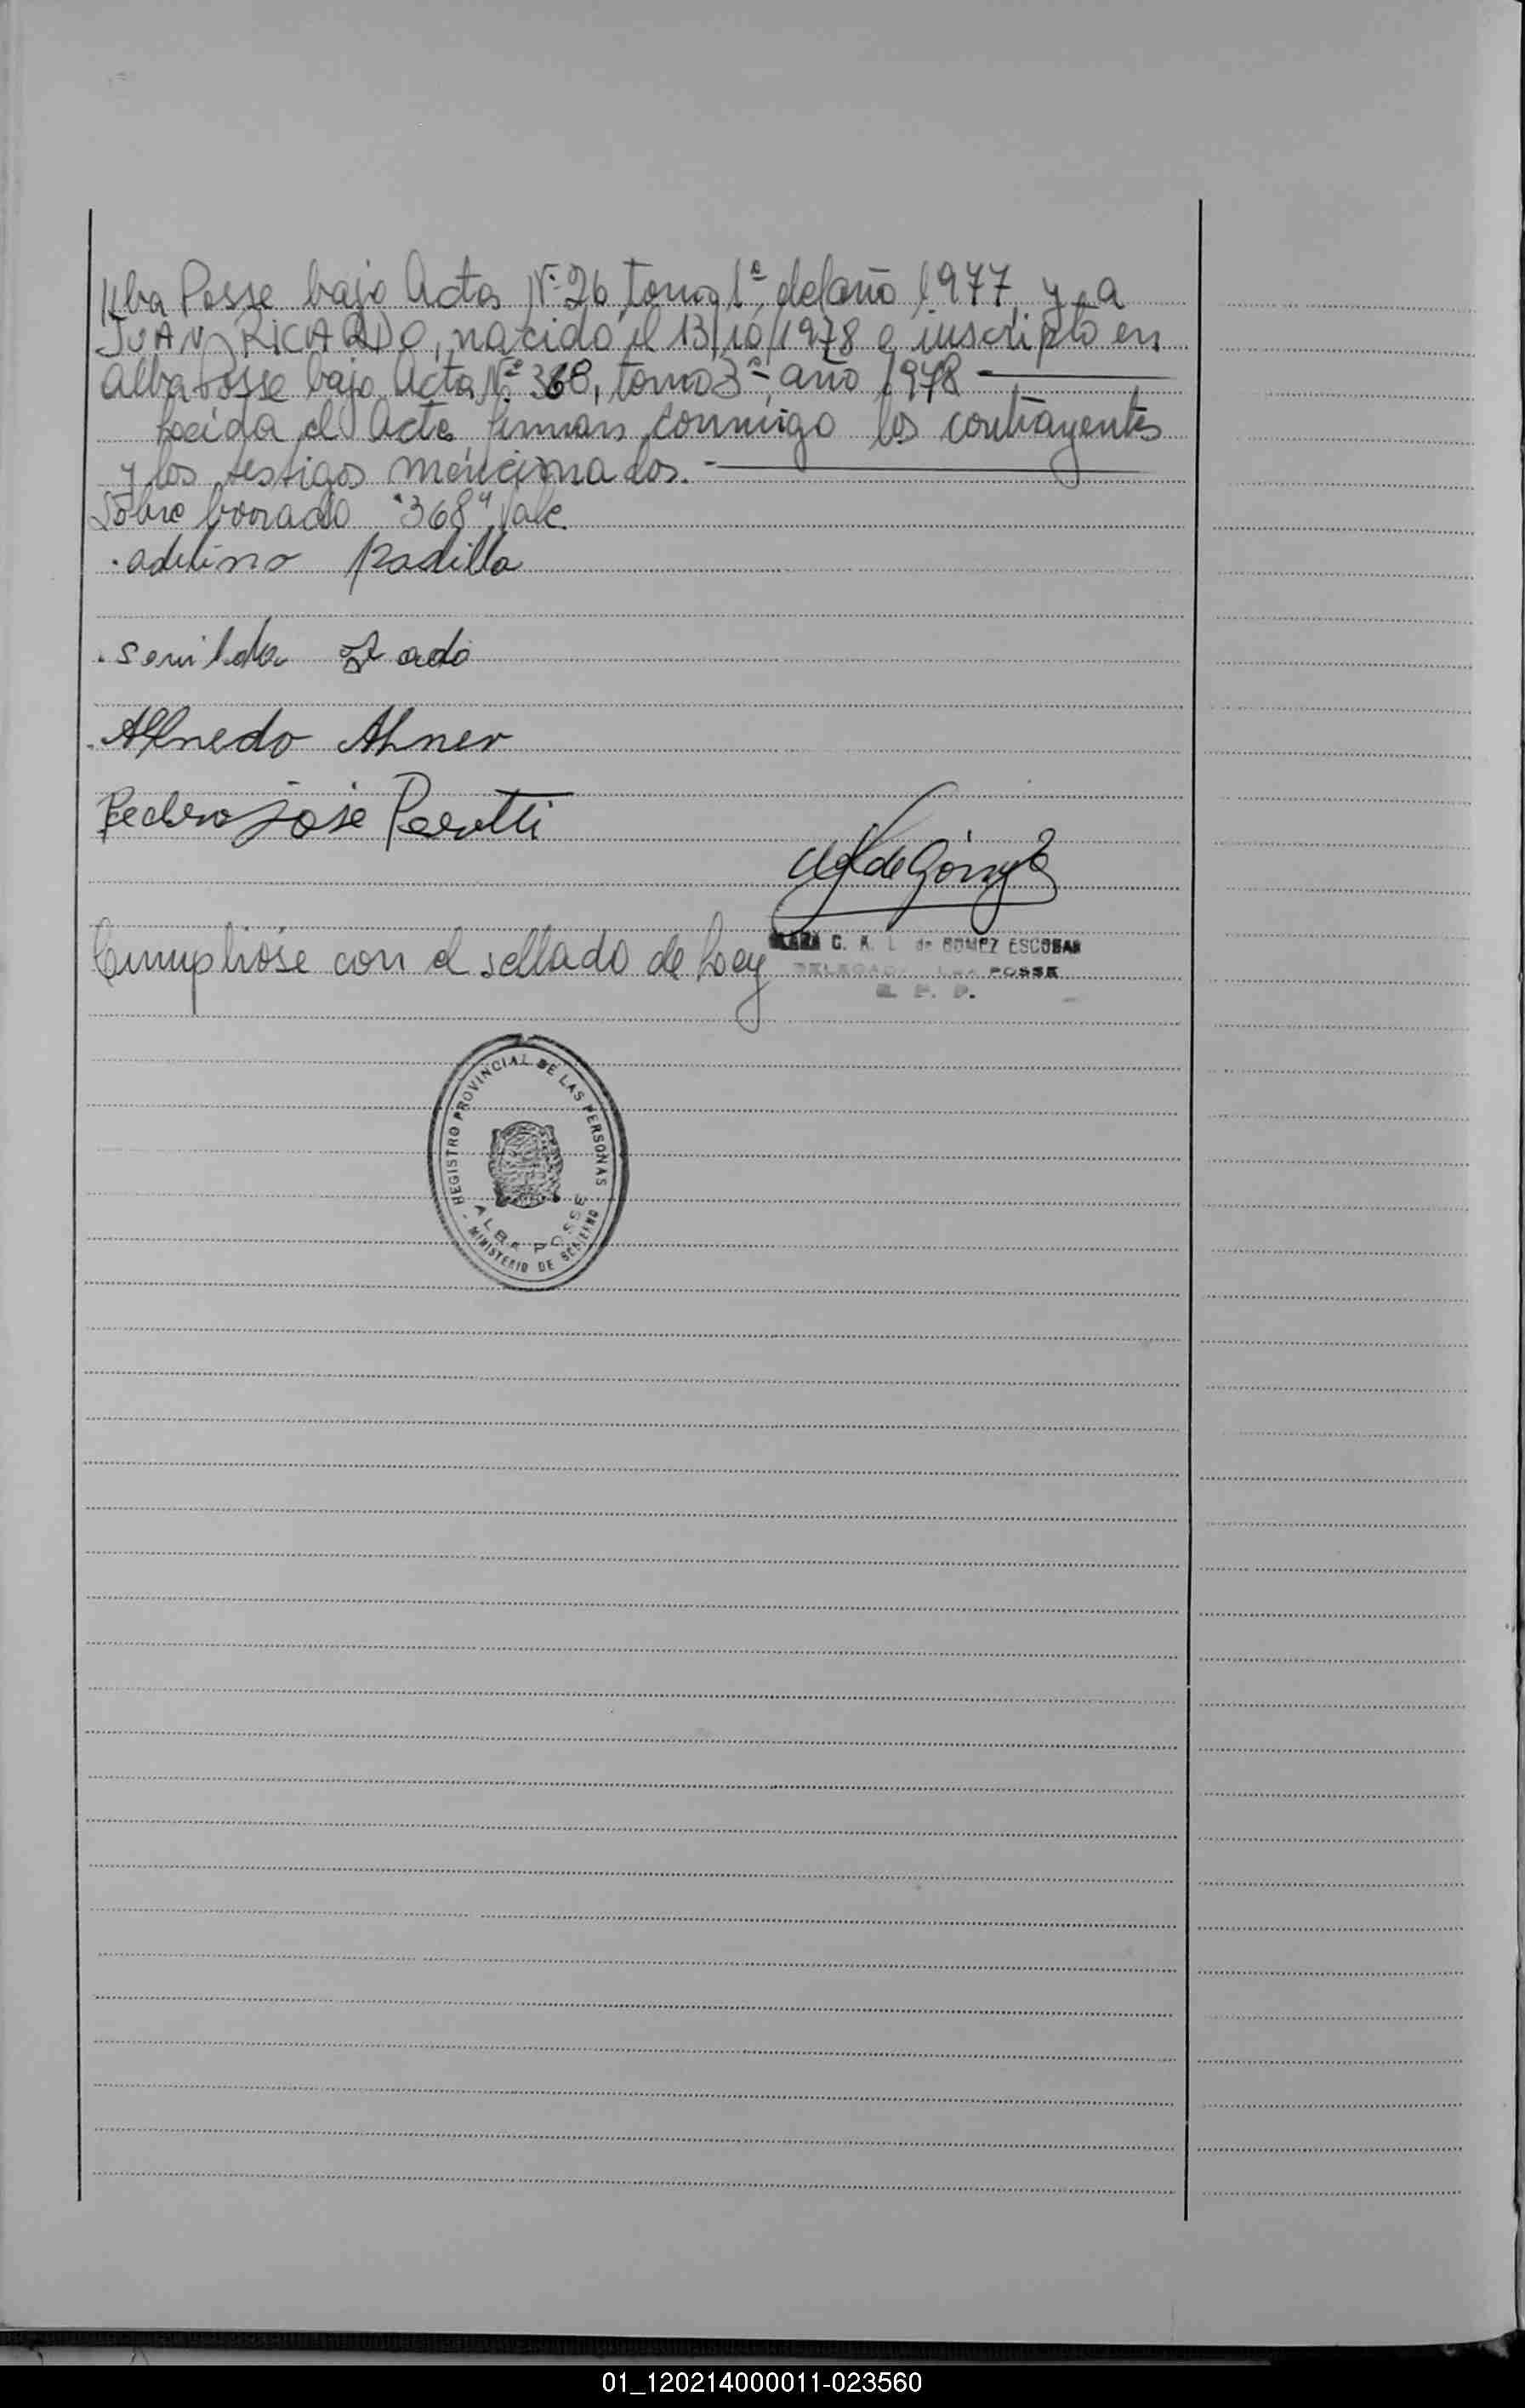 Alba Posse bajo Acta Nº 26, Tomo 1º, del año 1977, y a
JUAN RICARDO, nacido el 13/10/1978 e inscripto en
Alba Posse bajo Acta Nº 368, tomo 3º, año 1978
Leída el Acta firman conmigo los contrayentes
y los testigos mencionados.-
Sobre borrado "368" Vale
adelino Padilla
Alfredo Ahner
Pedro José Perotti
de GOMEZ ESCOBAR
POSSE
Cumplióse con el sellado de Ley
REGISTRO PROVINCIAL DE LAS PERSONAS
ALBA POSSE
- MINISTERIO DE GOBIERNO
01_120214000011-023560